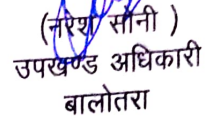 (नरेश सोनी )
उपखण्ड अधिकारी
बालोतरा